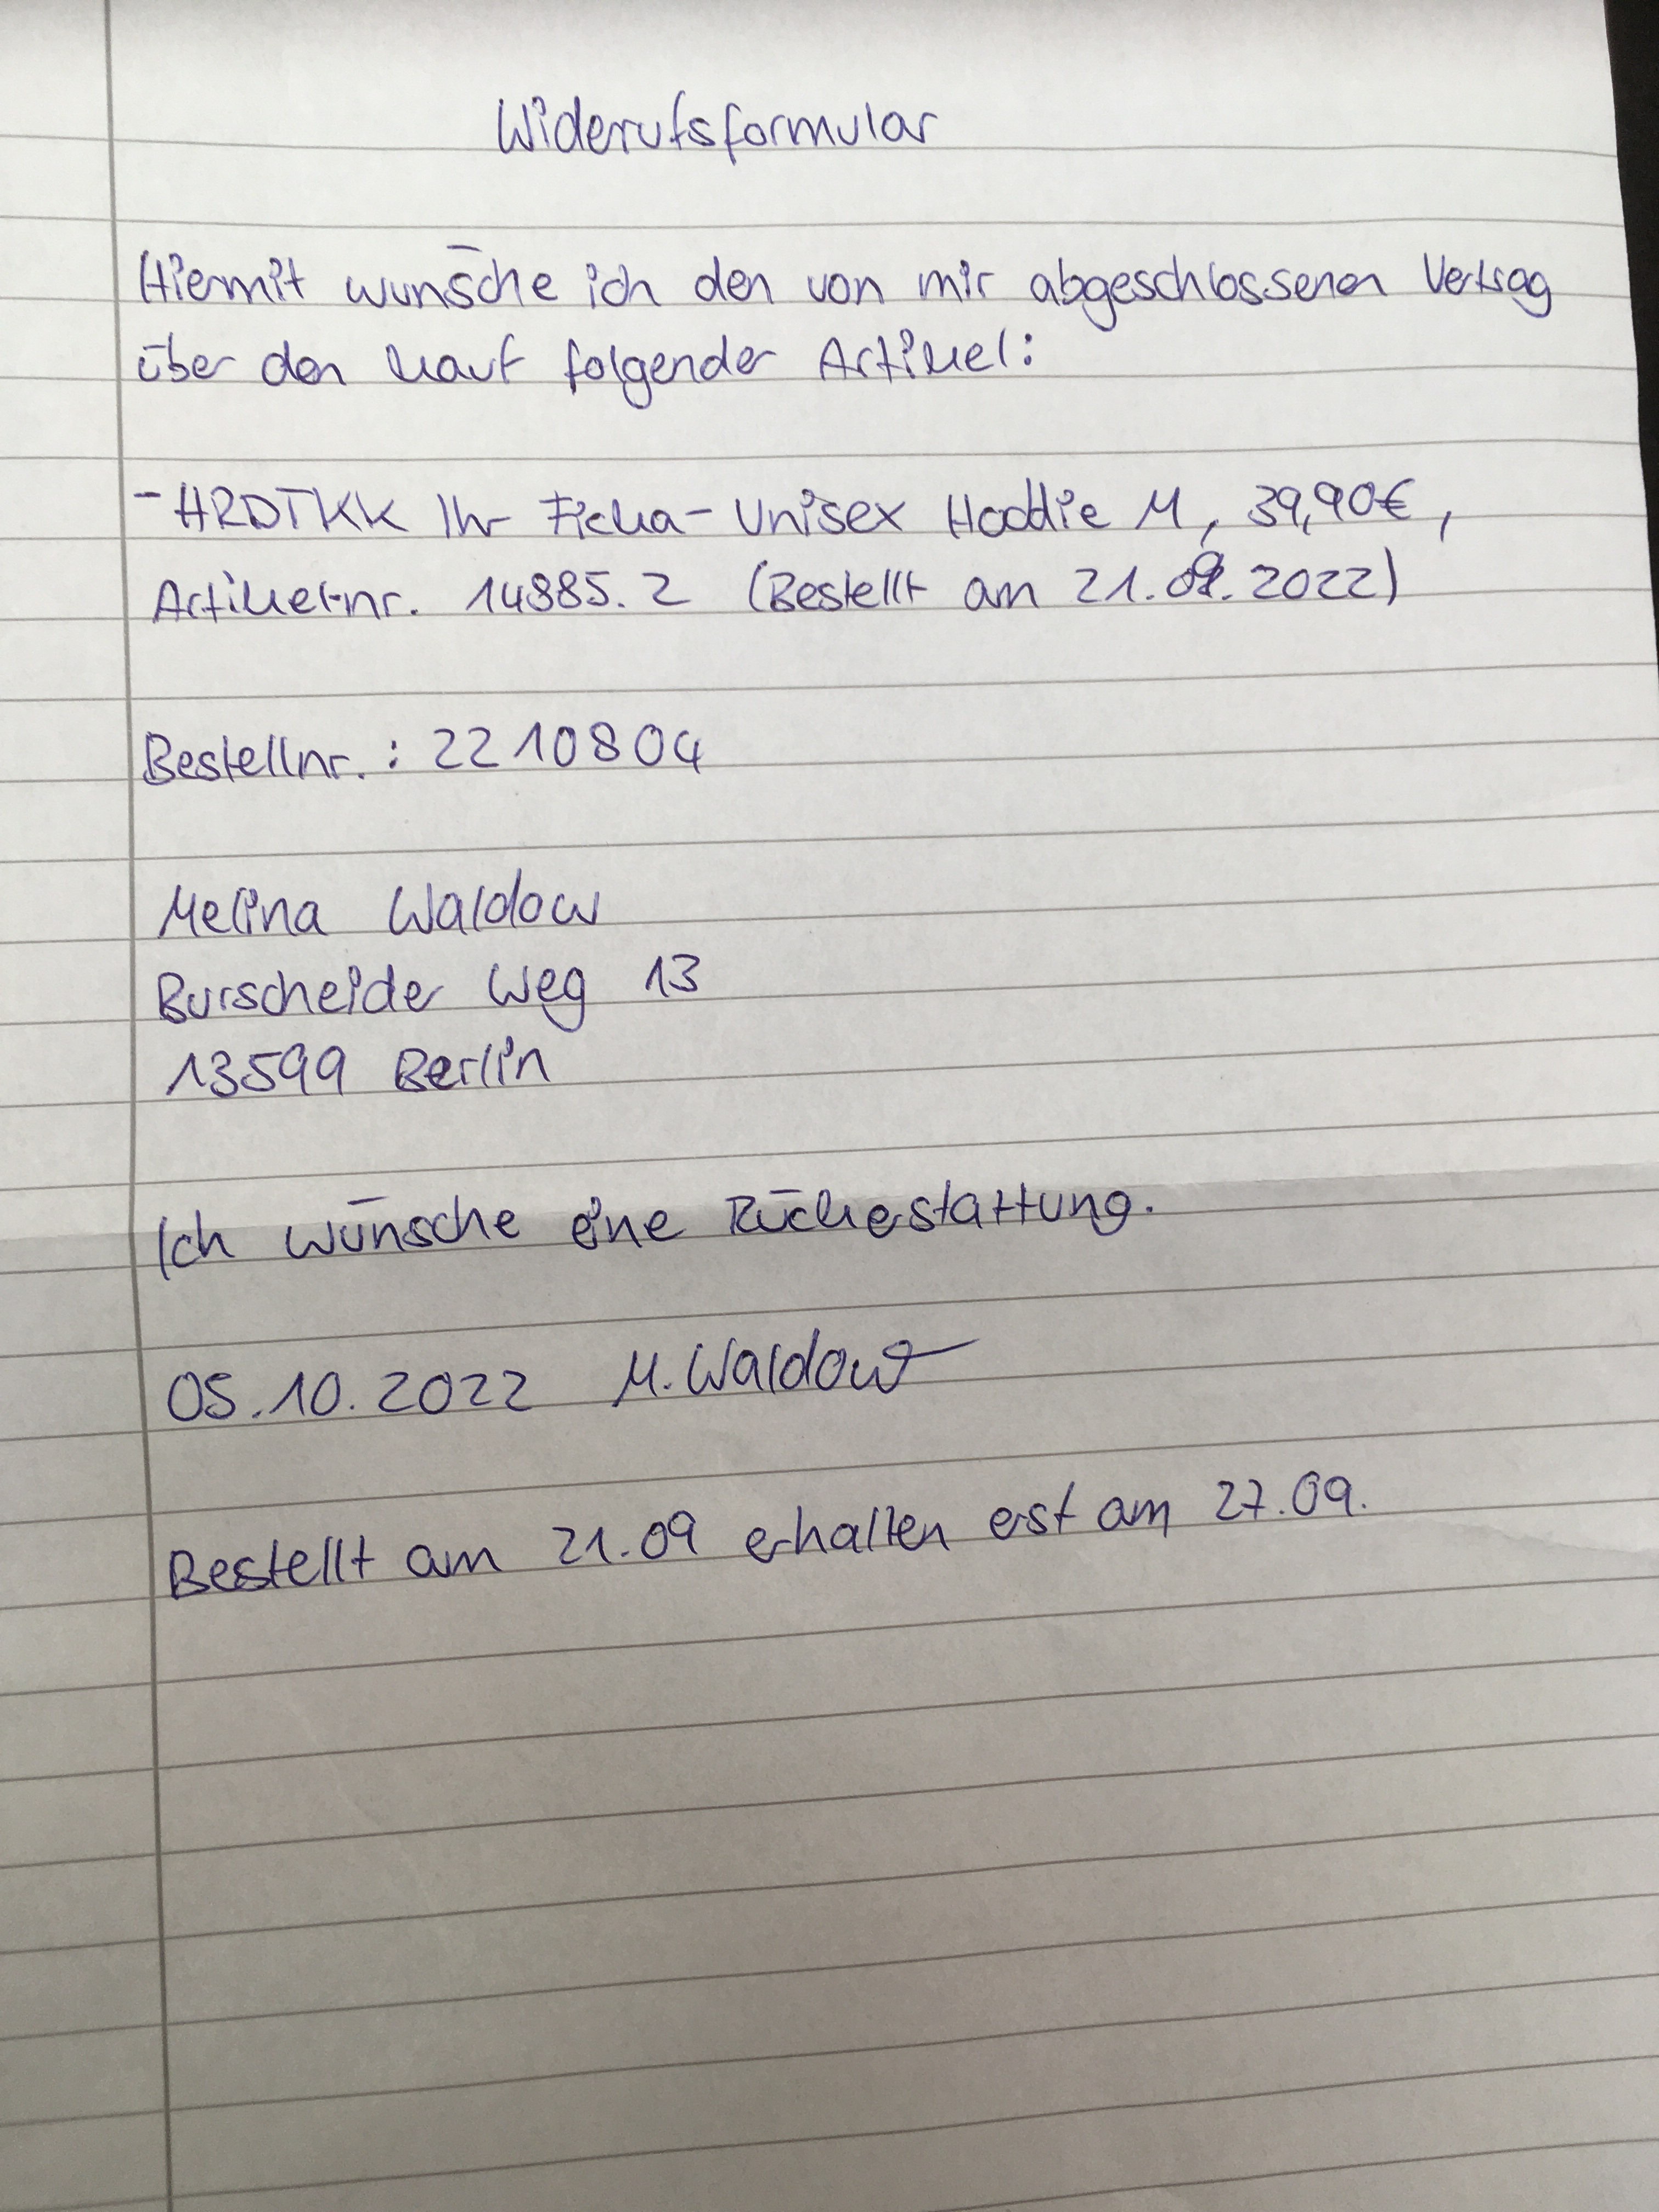 Widerufsformular
Hiermit wünsche ich den von mir abgeschlossenen Vertrag
über den Kauf folgender Artikel:
- HRDTKK Ihr Ficka - Unisex Hoodie M, 39,90€,
Artikelnr. 14885.2 (Bestellt am 21.09.2022)
Bestellnr.: 2210804
Melina Waldow
Burscheider Weg 13
13599 Berlin
Ich wünsche eine Rückestattung.
05.10.2022 M. Waldow
Bestellt am 21.09 erhalten erst am 27.09.